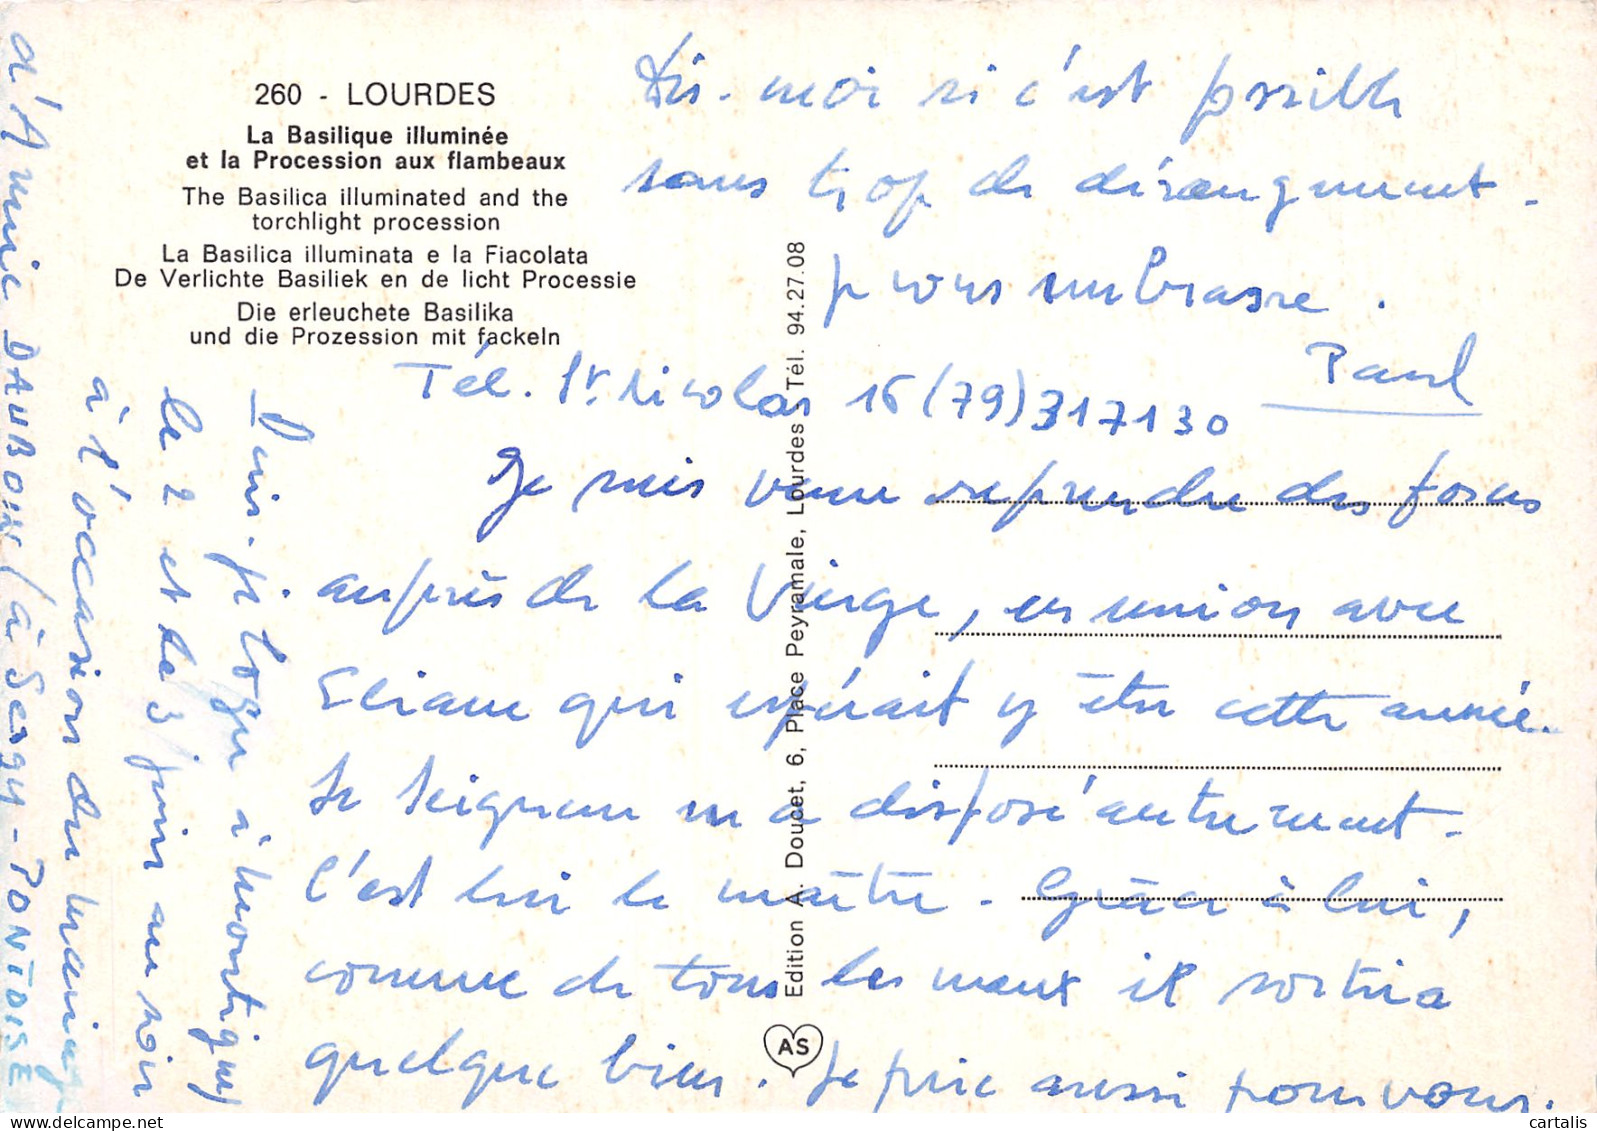 260 - LOURDES
La Basilique illuminée
et la Procession aux flambeaux
The Basilica illuminated and the
torchlight procession
La Basilica illuminata e la Fiacolata
De Verlichte Basiliek en de licht Processie
Die erleuchete Basilika
und die Prozession mit fackeln
Edition A. Doucet, 6, Place Peyramale, Lourdes Tél. 94.27.08
AS
Je suis venu reprendre des forces
auprès de la Vierge, en union avec
Eliane qui espérait y être cette année.
Le Seigneur en a disposé autrement.
C'est lui le maître. Grâce à lui,
comme de tous les maux il sortira
quelque bien. Je prie aussi pour vous.
Puis-je loger à Montigny
le 2 et le 3 juin au soir
à l'occasion du mariage
d'Annie DAUBOIN (à Sergy-PONTOISE
Dis-moi si c'est possible
sans trop de dérangement.
Je vous embrasse.
Paul
Tél. St. Nicolas 16 (79) 317130
cartalis